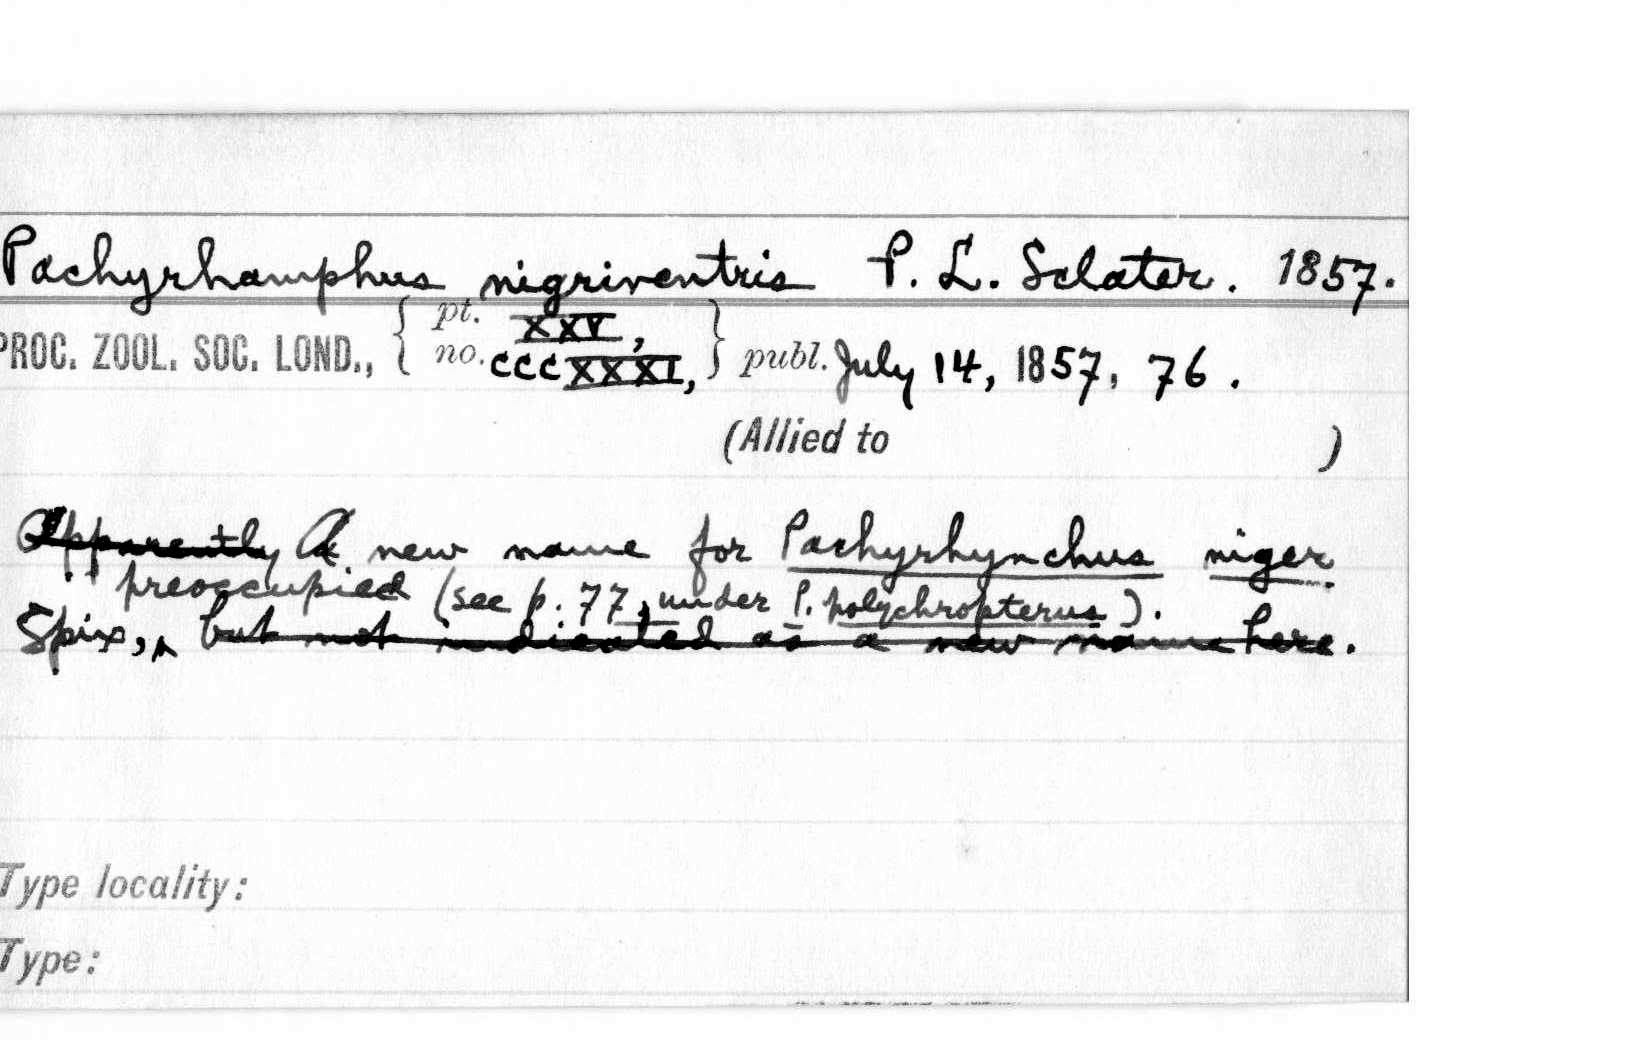 Pachyrhamphus nigriventris P. L. Sclater. 1857.
PROC. ZOOL. SOC. LOND., { pt. XXV, no. CCCXXXI, } publ. July 14, 1857, 76.
(Allied to )
Apparently A new name for Pachyrhynchus niger
preoccupied (see p. 77, under P. polychropterus).
Spix, ‸ but not indicated as a new name here.
Type locality:
Type: